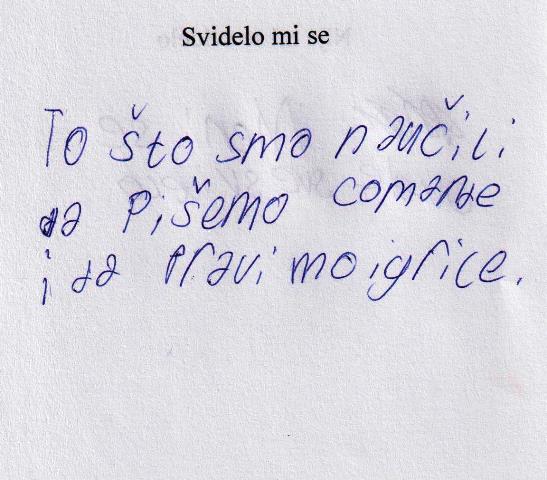 Svidelo mi se
To što smo naučili
da pišemo comande
i da pravimo igrice.